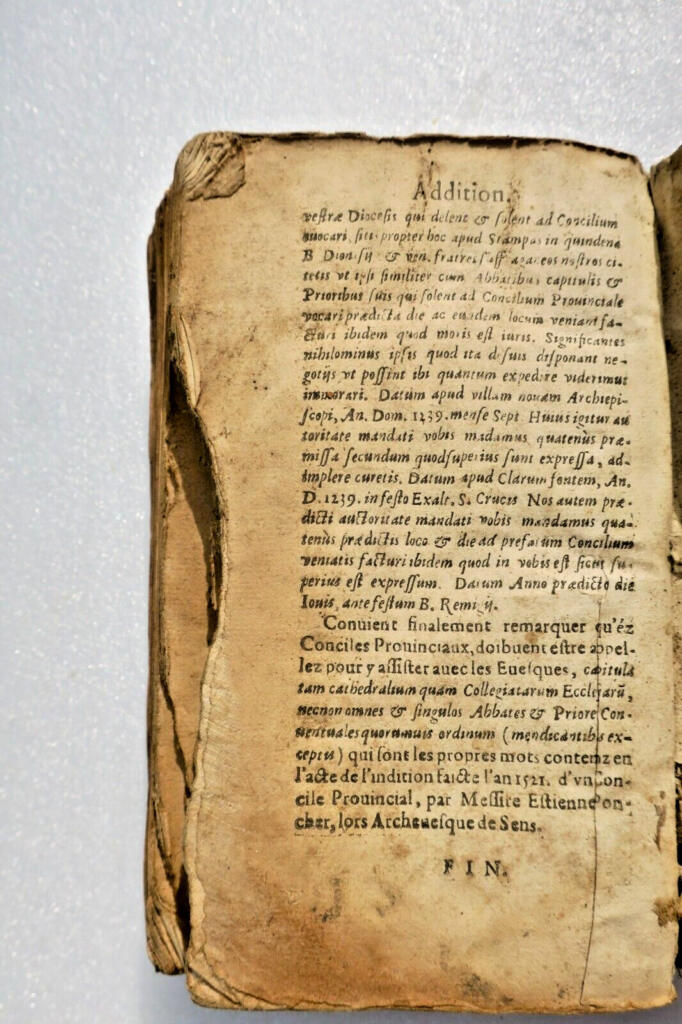 Addition.
vestræ Diocesis qui debent & solent ad Concilium
propter hoc apud Stampas in quindena
B Dionisij & ven. fratres nostros ci-
tetis vt ipsi similiter cum Abbatibus capitulis &
Prioribus suis qui solent ad Concilium Prouinciale
vocari prædicta die ac eundem locum veniant fa-
cturi ibidem quod moris est iuris. Significantes
nihilominus ipsis quod ita de suis disponant ne-
gotijs vt possint ibi quantum expedire viderimus
immorari. Datum apud villam nouam Archiepi-
scopi, An. Dom. 1239. mense Sept Huius igitur au
toritate mandati vobis mādamus quatenùs præ-
missa secundum quod superius sunt expressa, ad-
implere curetis. Datum apud Clarum fontem, An.
D. 1239. in festo Exalt. S. Crucis Nos autem præ-
dicti auctoritate mandati vobis mandamus qua-
tenùs prædictis loco & die ad prefatum Concilium
veniatis facturi ibidem quod in vobis est sicut su-
perius est expressum. Datum Anno prædicto die
Iouis, ante festum B. Remigij.
Conuient finalement remarquer qu'éz
Conciles Prouinciaux, doibuent estre appel-
lez pour y assister auec les Euesques, capitula
tam cathedralium quam Collegiatarum Ecclesiarū,
necnon omnes & singulos Abbates & Priore Con-
uentuales quorumuis ordinum (mendicantibs ex-
ceptis) qui sont les propres mots contenuz en
l'acte de l'indition faicte l'an 1521. d'vn Con-
cile Prouincial, par Messire Estienne Pon-
cher, lors Archeuesque de Sens.
FIN.